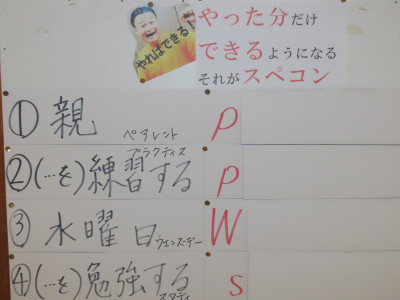 やればできる!
やった分だけ
できるようになる
それがスペコン
① 親 ペアレント P
② (…を)練習する プラクティス P
③ 水曜日 ウェンズ・デー W
④ (…を)勉強する スタディ s